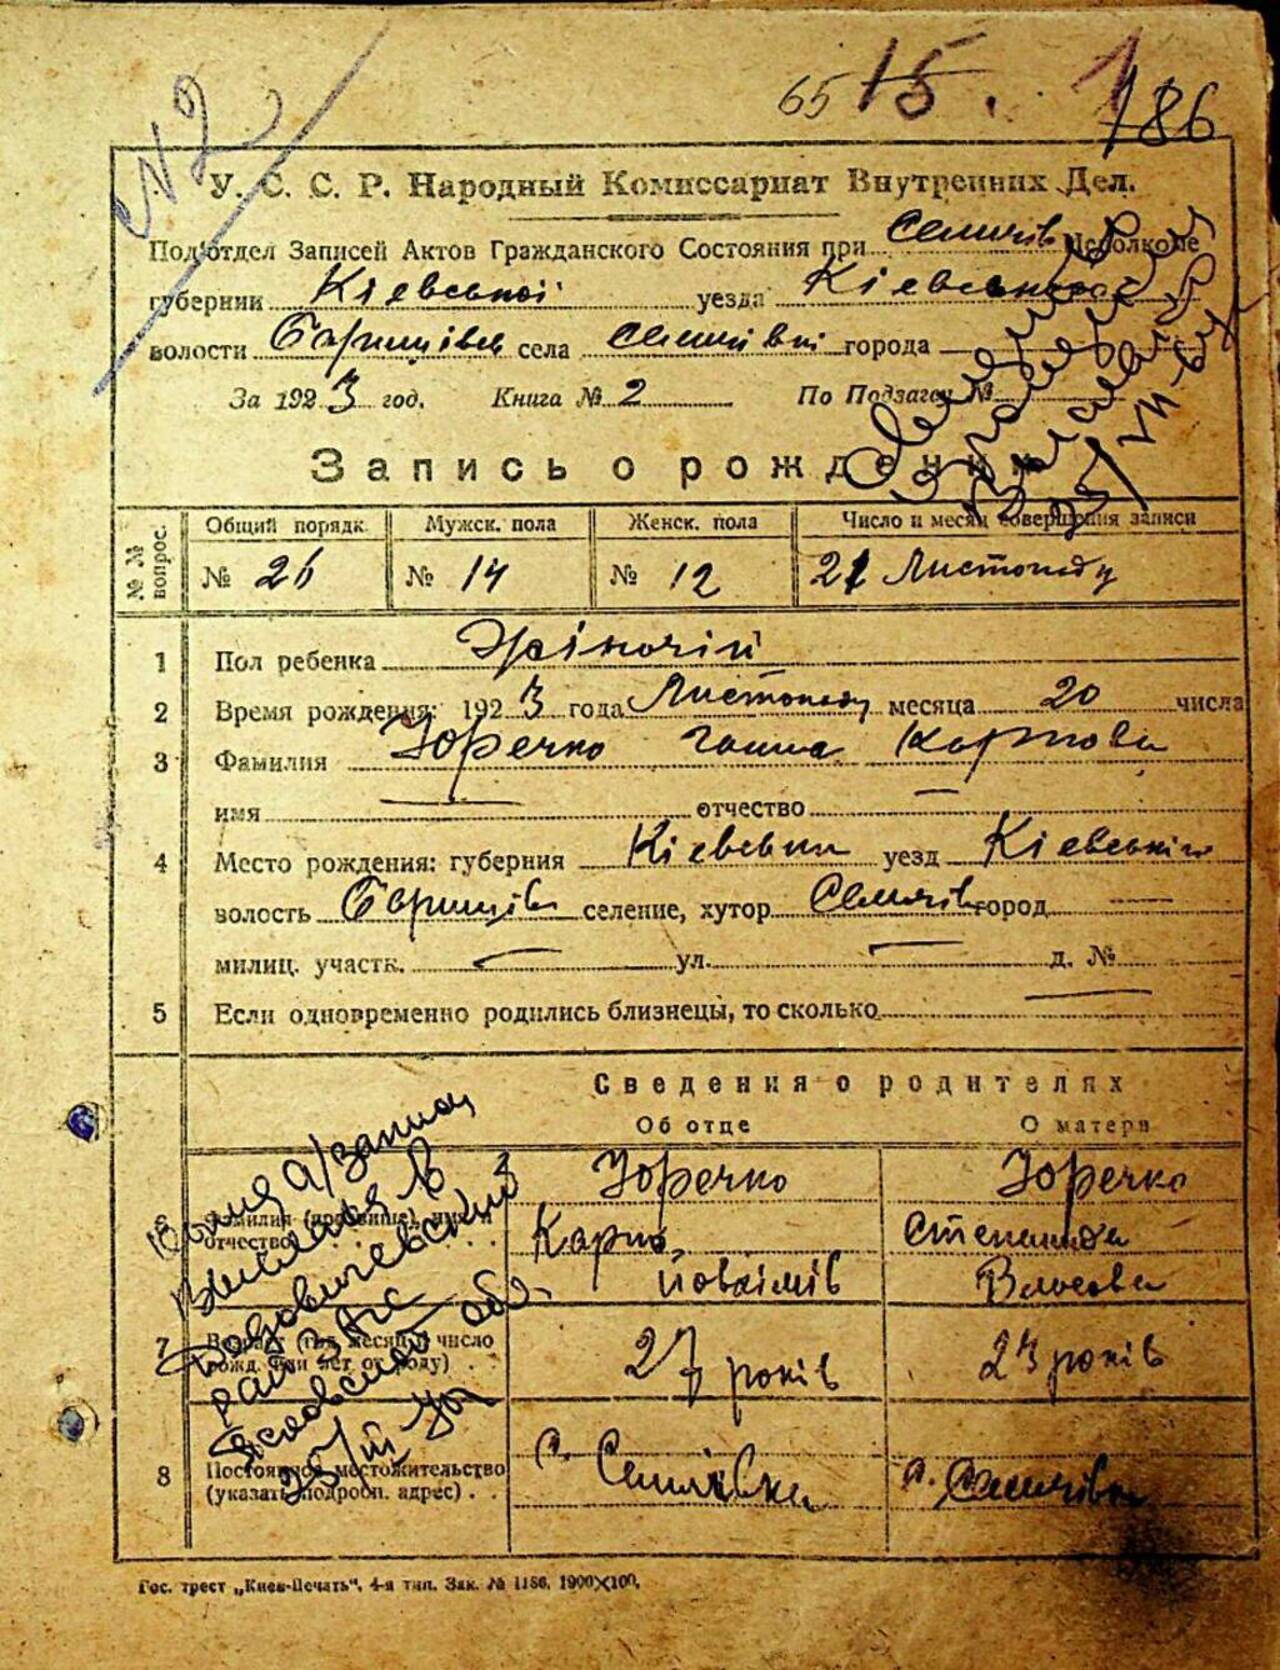 № 2
65 15. 1 186
У. С. С. Р. Народный Комиссариат Внутренних Дел.
Под'отдел Записей Актов Гражданского Состояния при Семиків Исполкоме
губернии Київської уезда Київського
волости Баришів села Семиківки города
За 1923 год. Книга № 2 По Подзагсу №
Запись о рождении
№№ вопрос. Общий порядк. Мужск. пола Женск. пола Число и месяц совершения записи
№ 26 № 14 № 12 21 Листопаду
1 Пол ребенка Жіночій
2 Время рождения: 1923 года Листопаду месяца 20 числа
3 Фамилия Юречко Ганна Карпова
имя — отчество —
4 Место рождения: губерния Київськи уезд Київський
волость Баришів селение, хутор город —
милиц. участк. — ул. — д. №
5 Если одновременно родились близнецы, то сколько —
Сведения о родителях
Об отце О матери
6 Фамилия (прозвище), имя и отчество Юречко Юречко
Карпо Степанида
Йовхімів Власова
7 Возраст (год, месяц и число рожд. или лет от роду) 27 років 23 років
8 Постоянное местожительство (указать подробн. адрес) с. с.
а/запись
в
ЗАГС
обл.
25/III
Гос. трест „Киев-Печать", 4-я тип. Зак. № 1186. 1900×100.